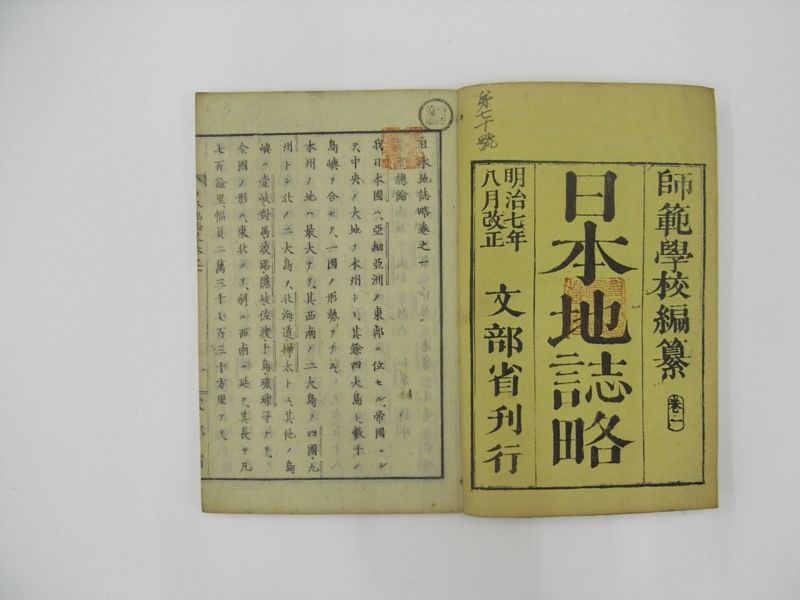 第七十號
師範學校編纂 巻一
日本地誌略
明治七年
八月改正
文部省刊行
日本地誌略卷之一
總論
我日本國ハ、亞細亞洲ノ東部ニ位セル、帝國ニシ
テ、中央ノ大地ヲ本州トシ、其餘四大島ト、數千ノ
島嶼ヲ合セテ、一國ノ形勢ヲナス、
本州ノ地ハ、最大ナリ、其西南ノ二大島ヲ、四國、九
州トシ、北ノ二大島ヲ、北海道樺太トス、其他ノ島
嶼ハ、壹岐、對馬、淡路、隱岐、佐渡、ト島、琉球等ナリ、
全國ノ形ハ、東北ヨリ、斜ニ西南ニ延ヒ、其長サ凡
七百餘里、幅員二萬三千七百三十方里アリ、